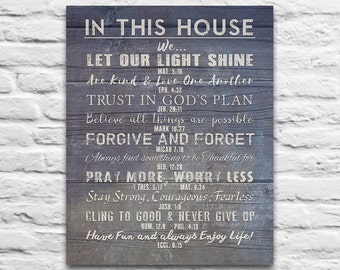 IN THIS HOUSE
We...
LET OUR LIGHT SHINE
MAT. 5:16
Are Kind & Love One Another
EPH. 4:32
TRUST IN GOD'S PLAN
JER. 29:11
Believe all things are possible
MARK 10:27
FORGIVE AND FORGET
MICAH 7:18
Always find something to be Thankful for
HEB. 12:28
PRAY MORE, WORRY LESS
1 THES. 5:17 MAT. 6:34
Stay Strong, Courageous, Fearless
JOSH. 1:9
CLING TO GOOD & NEVER GIVE UP
ROM. 12:9 PHIL. 4:13
Have Fun and always Enjoy Life!
ECCL. 8:15